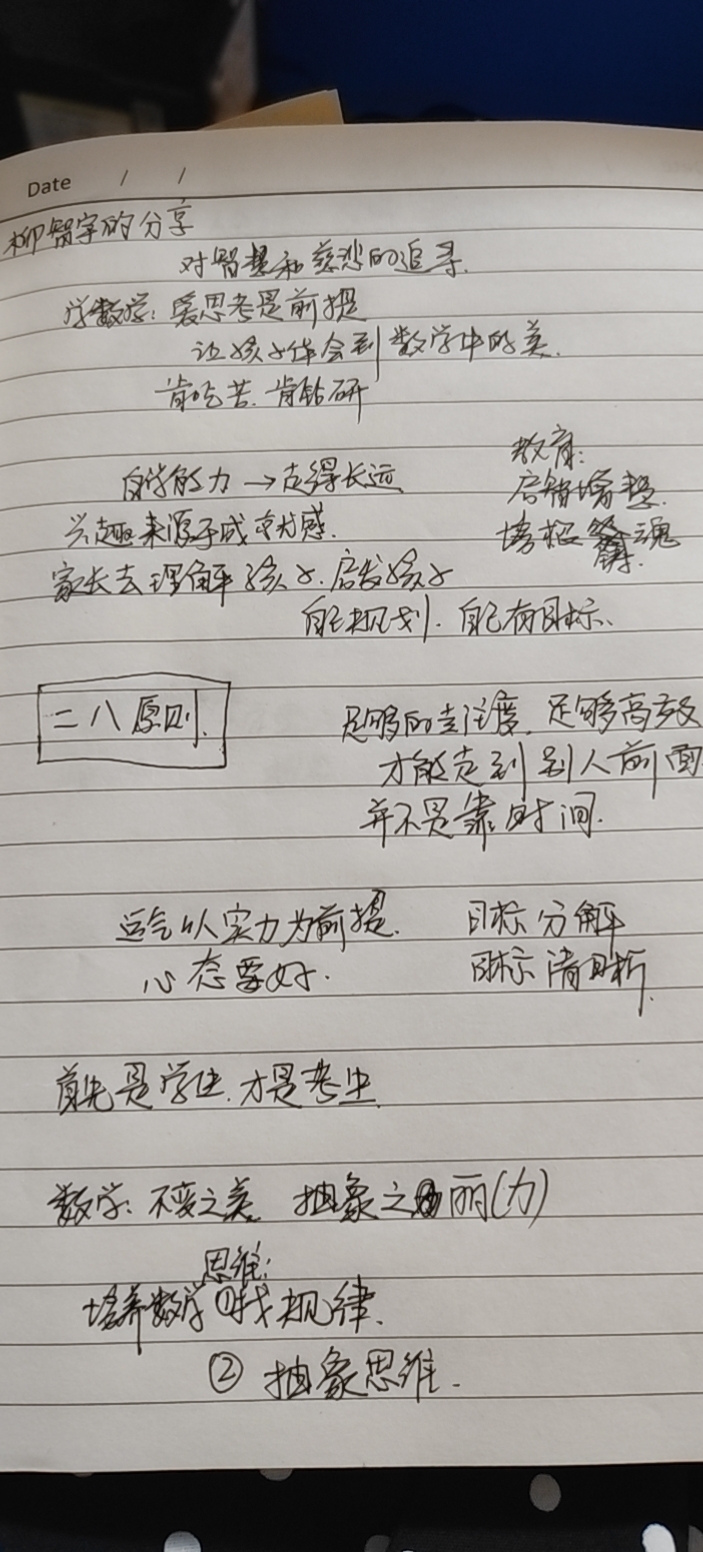 Date / /
柳智宇的分享
对智慧和慈悲的追寻.
学数学: 爱思考是前提
让孩子体会到数学中的美.
肯吃苦. 肯钻研
教育:
自学能力 → 走得长远
启智增慧.
兴趣来源于成就感.
培根铸魂
家长去理解孩子. 启发孩子
自己规划. 自己有目标.
二八原则.
足够的专注度. 足够高效
才能走到别人前面
并不是靠时间.
运气以实力为前提. 目标分解
心态要好. 目标清晰.
首先是学生. 才是考生.
数学: 不变之美 抽象之丽(力)
思维:
培养数学 ①找规律.
② 抽象思维.